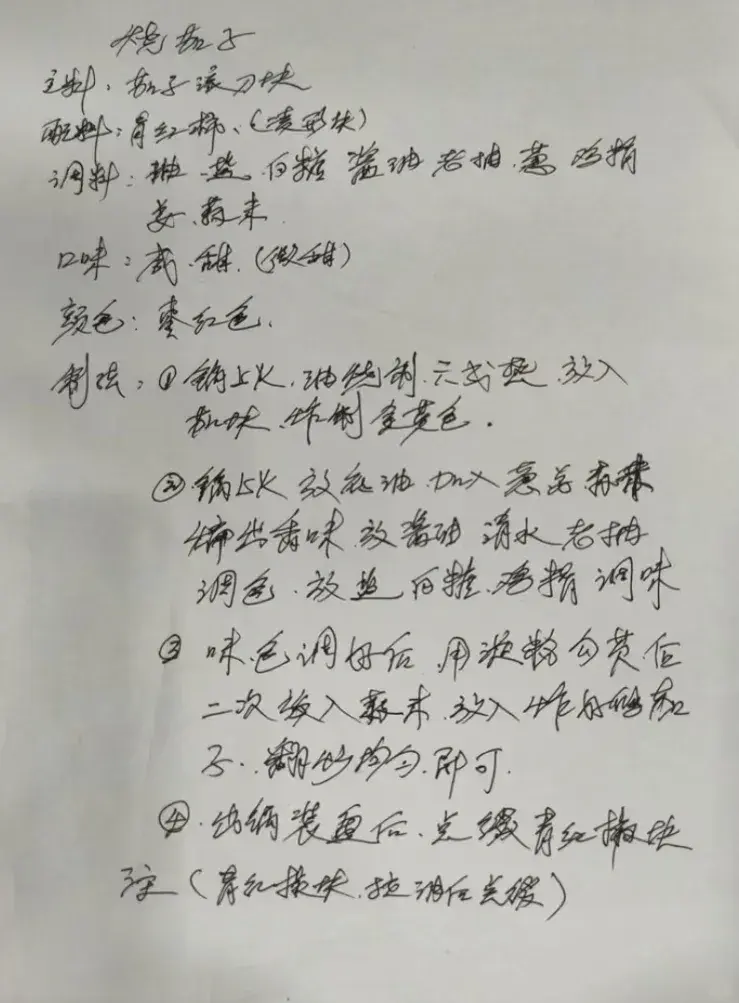 烧茄子
主料:茄子滚刀块
配料:青红椒、(菱形块)
调料:油 盐 白糖 酱油 老抽 葱 鸡精
姜 蒜末
口味:咸.甜.(微甜)
颜色:枣红色.
制法:①锅上火.油烧制.六成热.放入
茄块.炸制金黄色.
②锅上火 放底油 加入葱姜蒜末
煸出香味 放酱油 清水 老抽
调色.放盐 白糖.鸡精 调味
③ 味.色调好后 用淀粉勾芡后
二次放入蒜末.放入炸好的茄
子.翻炒均匀.即可.
④.出锅装盘后.点缀青红椒块
注(青红椒块.拉油后点缀)